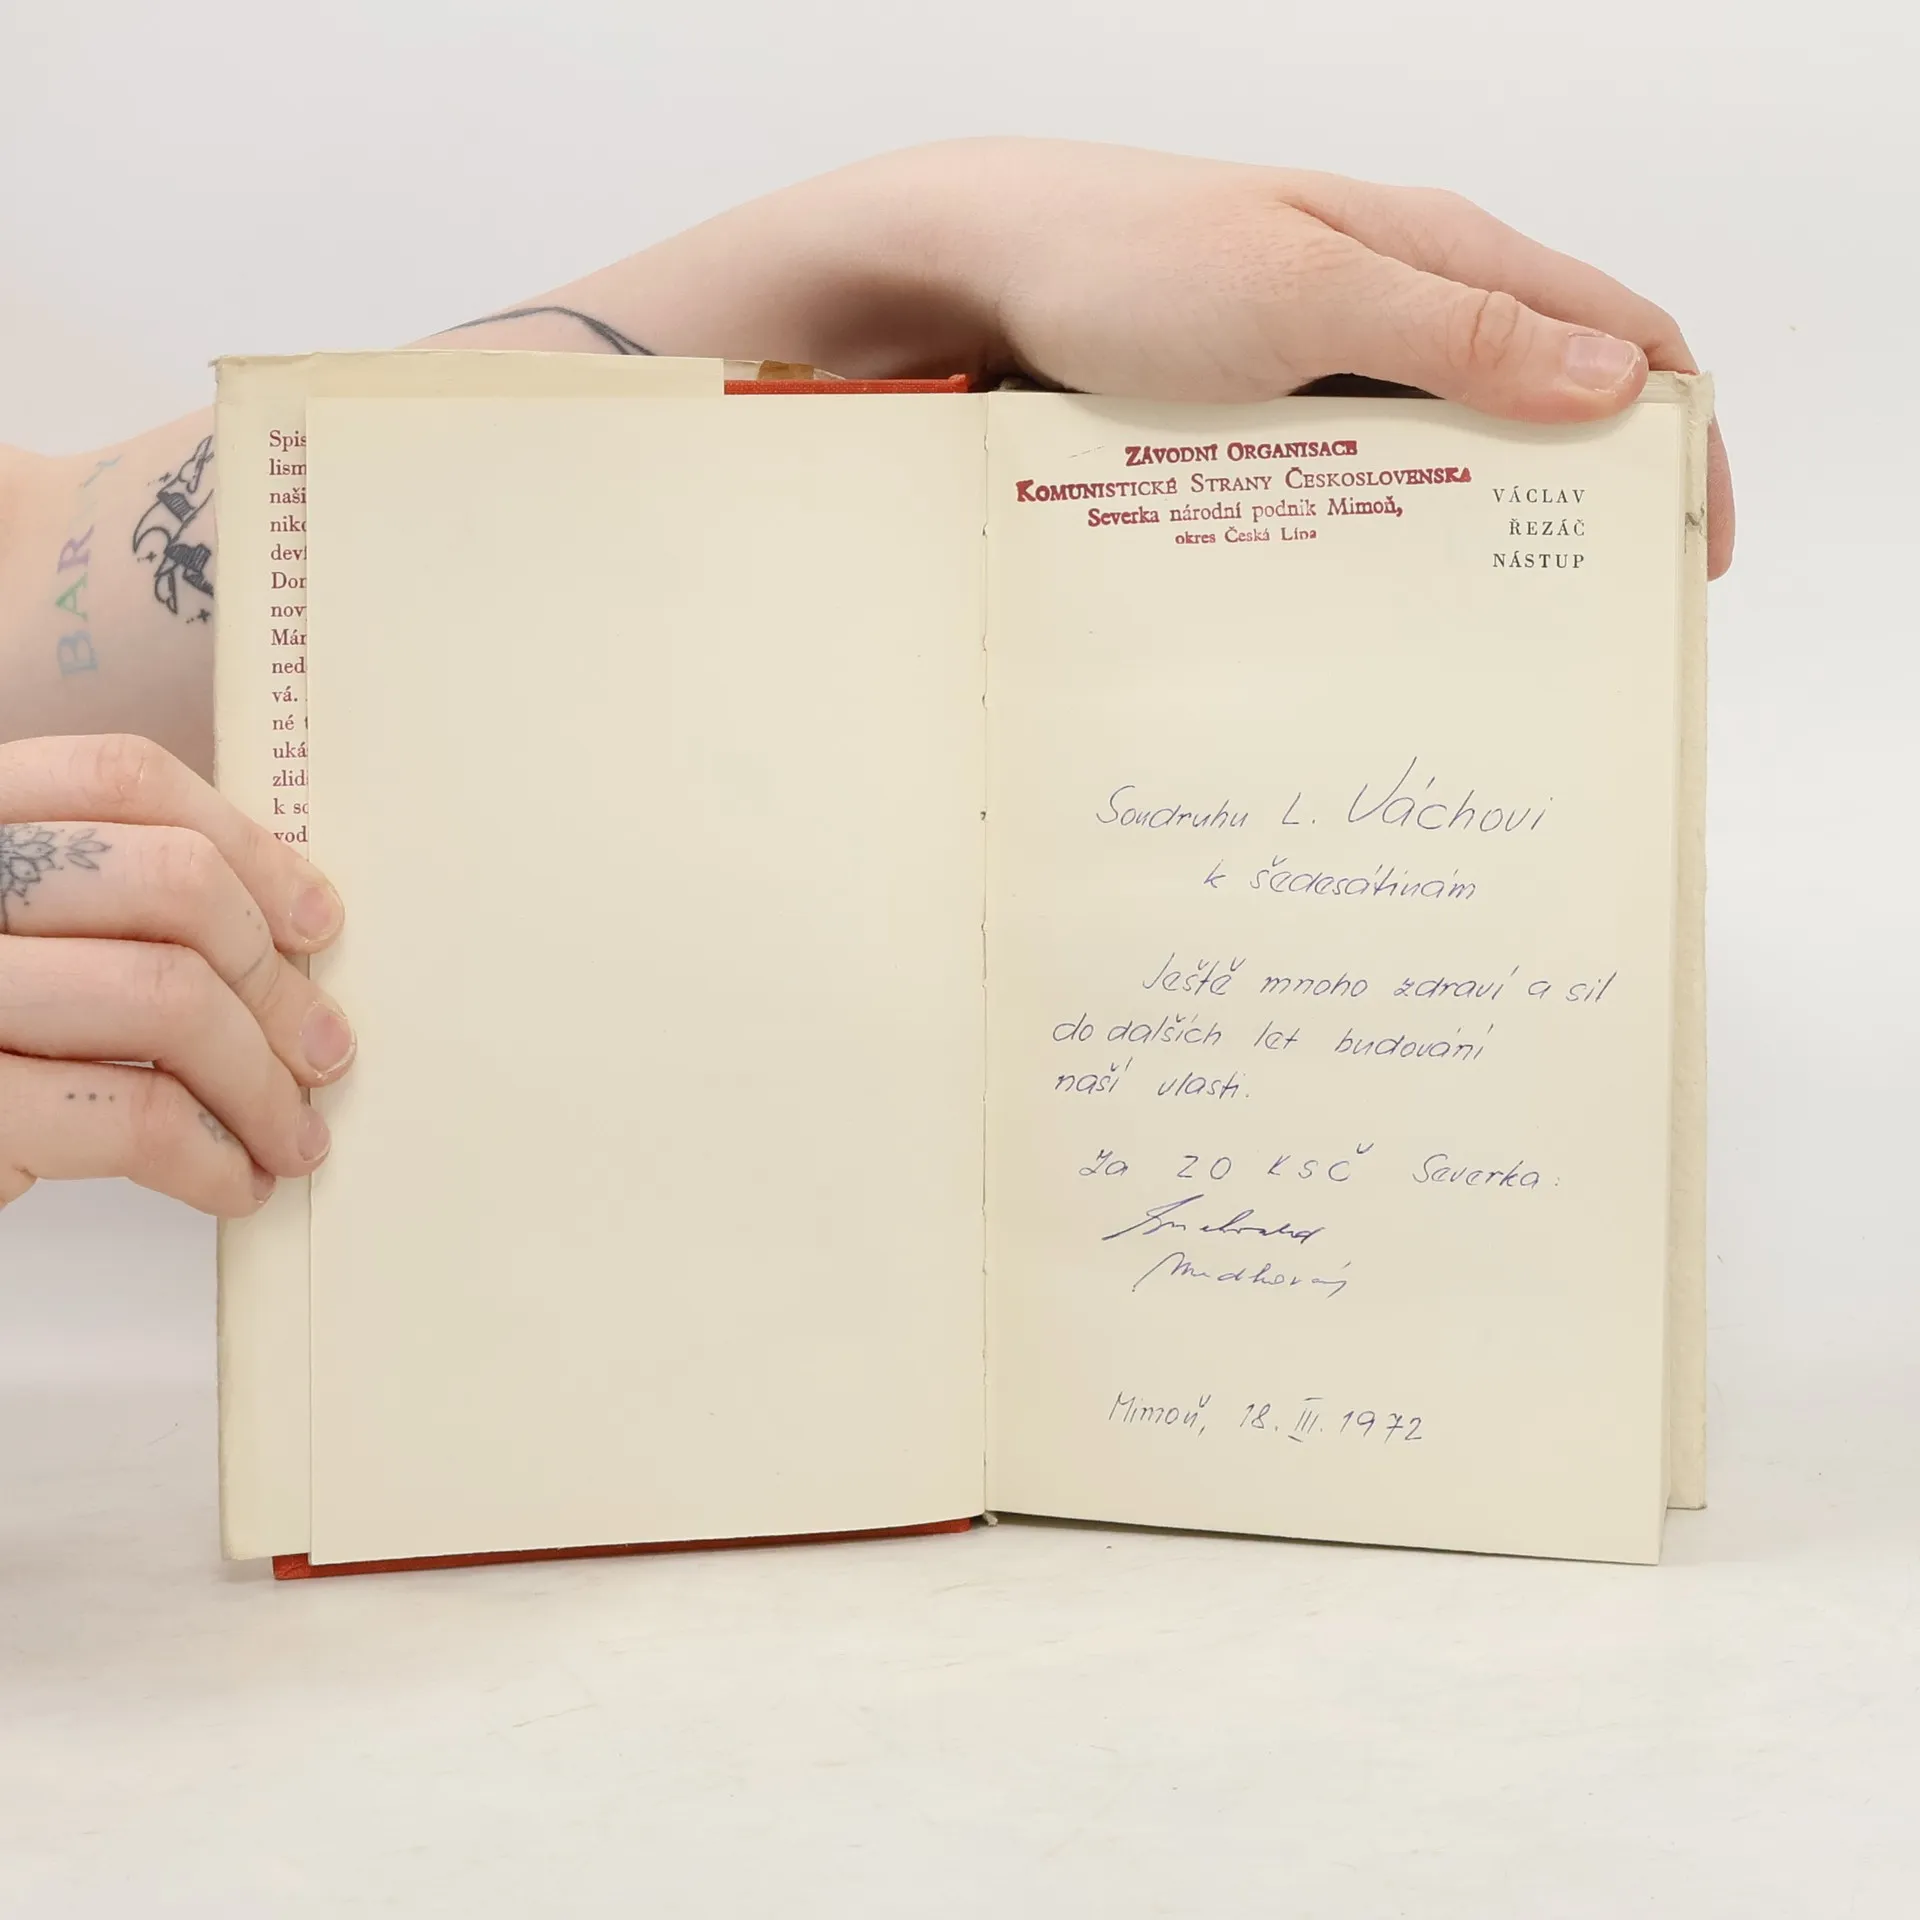 BAR
Spis
lism
naši
niko
deví
Dor
nov
Már
ned
vá.
né t
uká
zlid
k so
vod
ZÁVODNÍ ORGANISACE
KOMUNISTICKÉ STRANY ČESKOSLOVENSKA
Severka národní podnik Mimoň,
okres Česká Lípa
VÁCLAV
ŘEZÁČ
NÁSTUP
Soudruhu L. Váchovi
k šedesátinám
Ještě mnoho zdraví a sil
do dalších let budování
naší vlasti.
Za ZO KSČ Severka:
Mimoň, 18. III. 1972